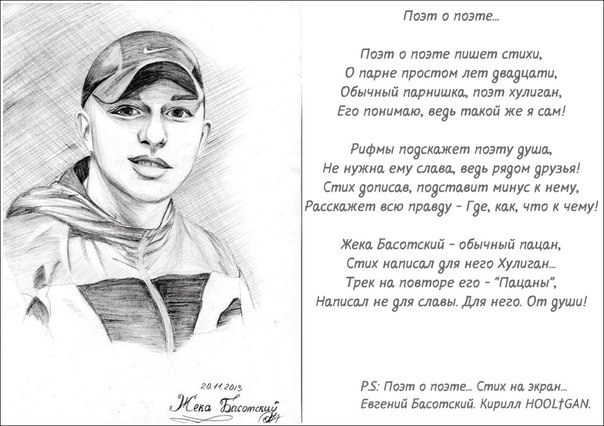 Поэт о поэте...
Поэт о поэте пишет стихи,
О парне простом лет двадцати,
Обычный парнишка, поэт хулиган,
Его понимаю, ведь такой же я сам!
Рифмы подскажет поэту душа,
Не нужна ему слава, ведь рядом друзья!
Стих дописав, подставит минус к нему,
Расскажет всю правду - Где, как, что к чему!
Жека Басотский - обычный пацан,
Стих написал для него Хулиган...
Трек на повторе его - "Пацаны",
Написал не для славы. Для него. От души!
P.S: Поэт о поэте... Стих на экран...
Евгений Басотский. Кирилл HOOL†GAN.
20.11.2013
Жека Басотский